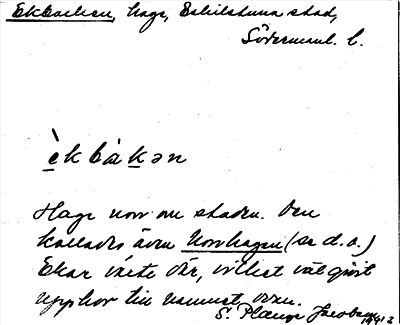 Ekbacken, hage, Eskilstuna stad,
Södermanl. l.
èkbàkən
Hage norr om staden. Den
kallades även Norrhagen (se d.o.)
Ekar växte där, vilket väl givit
upphov till namnet, ovan.
S. Plauge Jacobsen